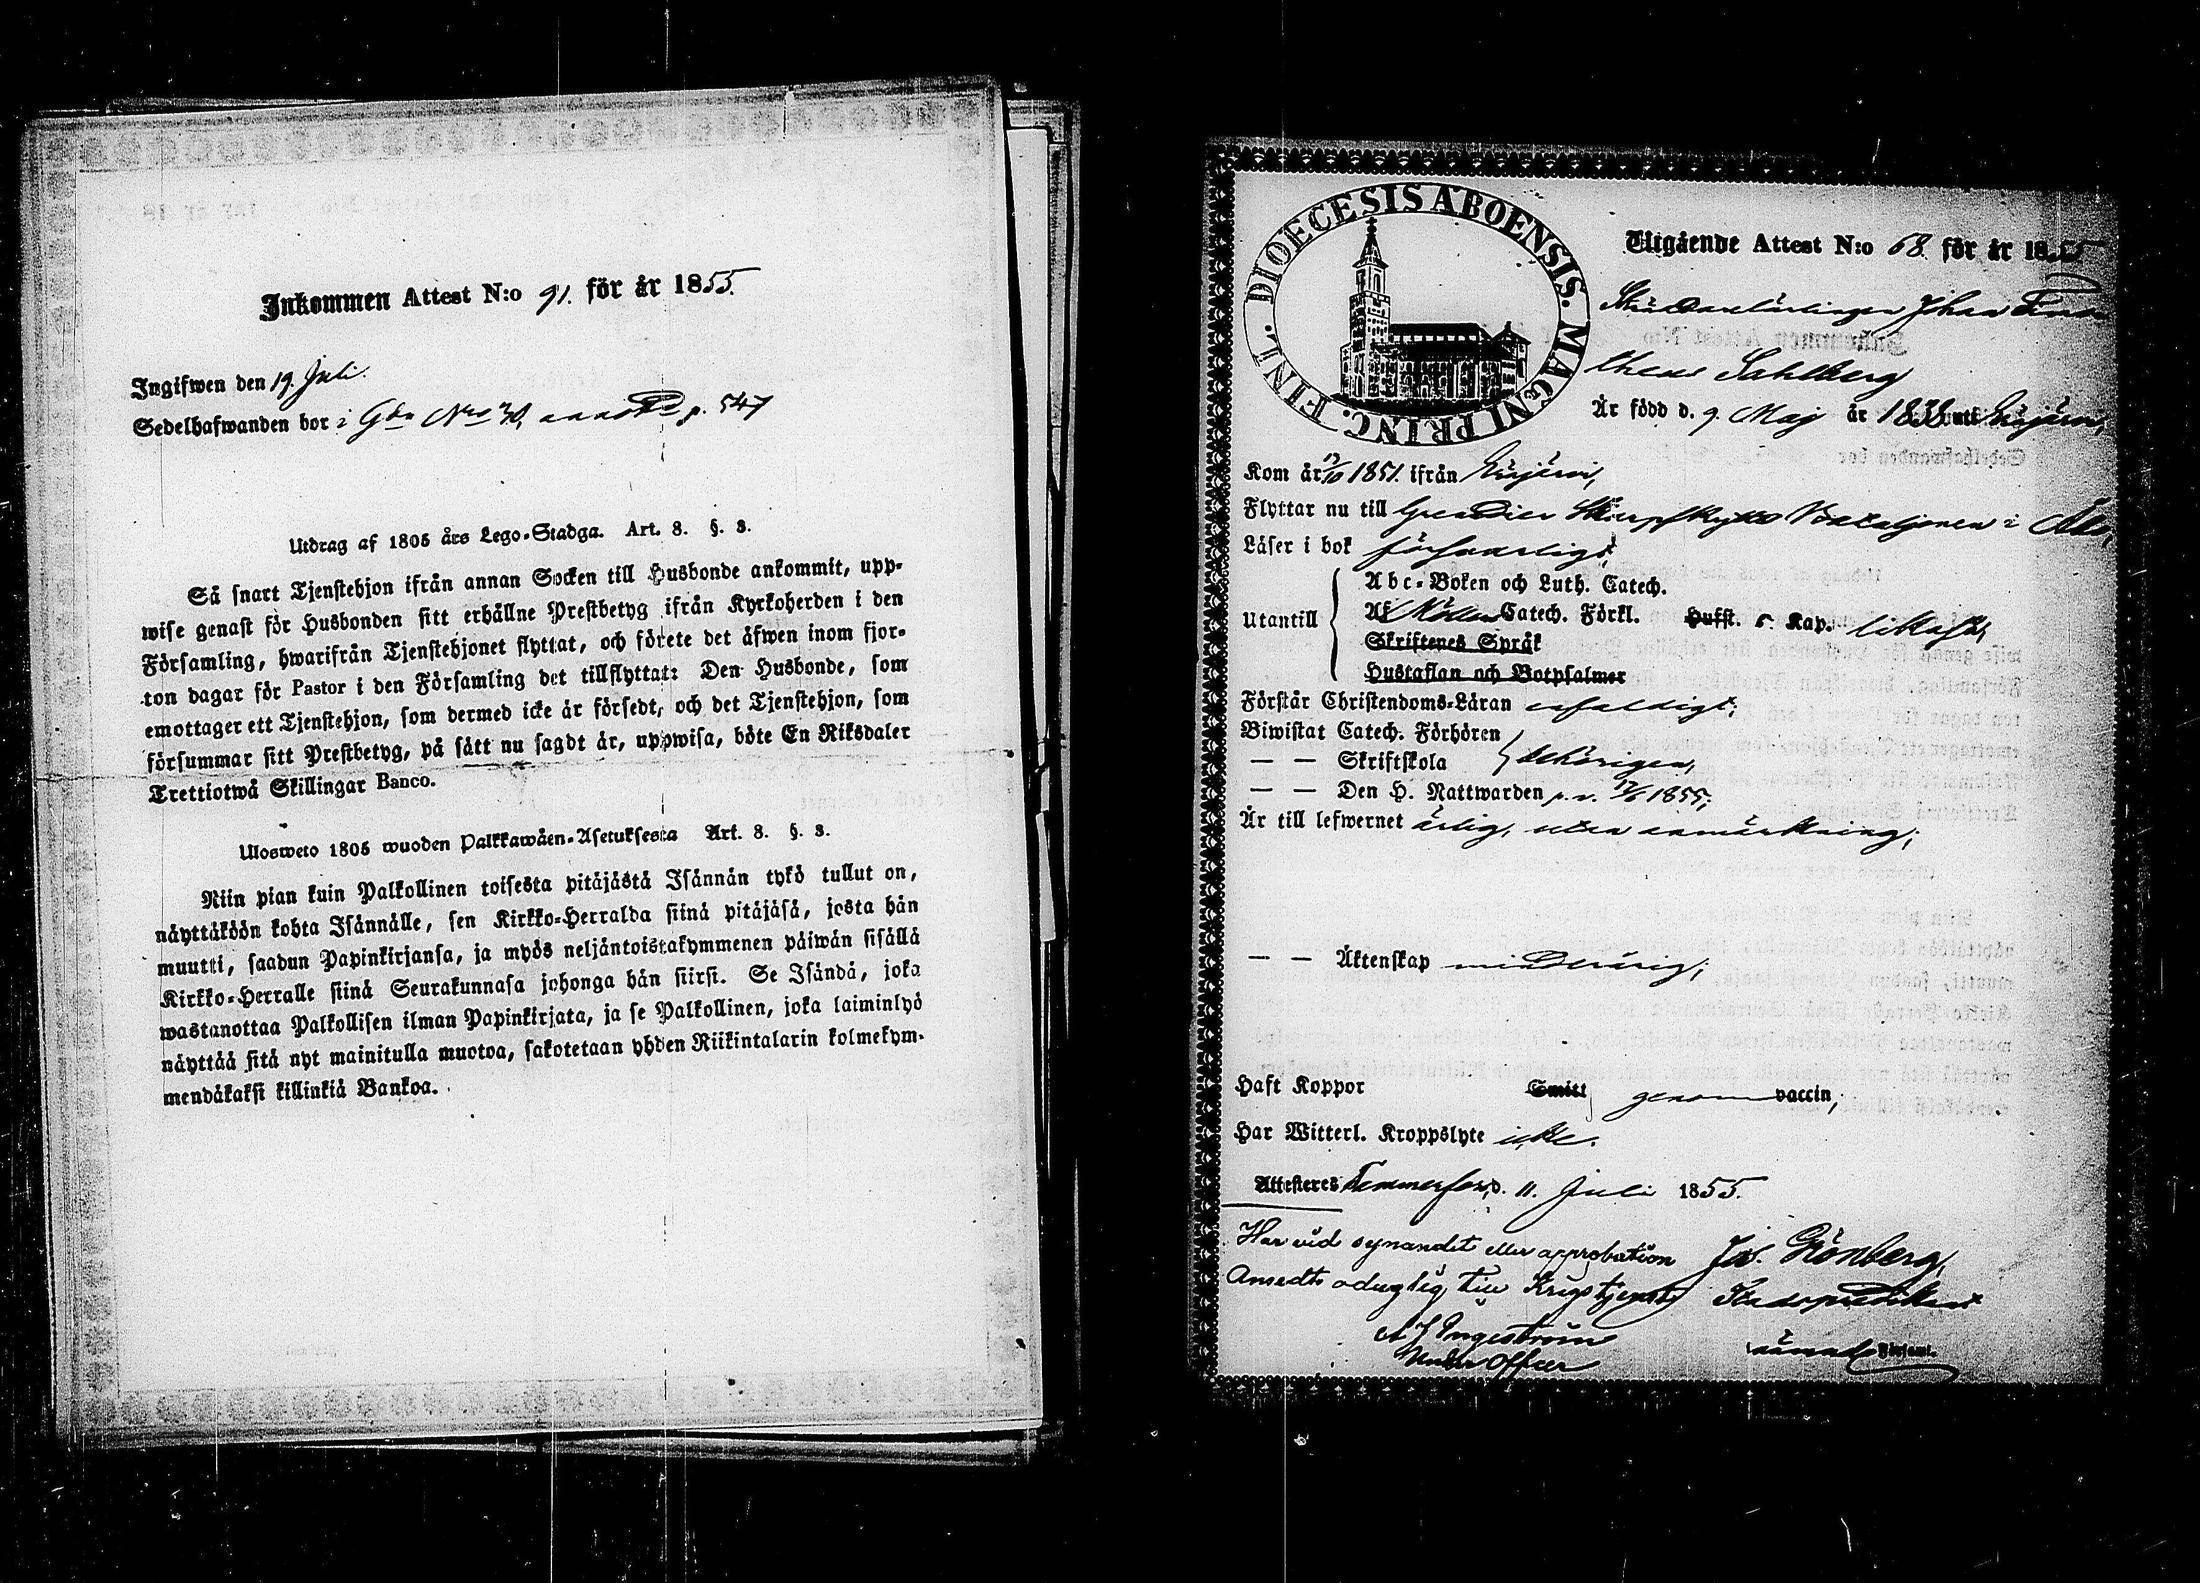 Inkommen Attest N:o 91. för år 1855.
Ingifwen den 19. Juli.
Sedelhafwanden bor i Gdn Nro 30, p. 547
Utdrag af 1805 års Lego-Stadga. Art. 8. §. 3.
Så snart Tjenstehjon ifrån annan Socken till Husbonde ankommit, upp-
wise genast för Husbonden sitt erhållne Prestbetyg ifrån Kyrkoherden i den
Församling, hwarifrån Tjenstehjonet flyttat, och förete det äfwen inom fjor-
ton dagar för Pastor i den Församling det tillflyttat: Den Husbonde, som
emottager ett Tjenstehjon, som dermed icke är försedt, och det Tjenstehjon, som
försummar sitt Prestbetyg, på sätt nu sagdt är, uppwisa, böte En Riksdaler
Trettiotwå Skillingar Banco.
Ulosweto 1805 wuoden Palkkawäen-Asetuksesta Art. 8. §. 3.
Niin pian kuin Palkollinen toisesta pitäjästä Isännän tykö tullut on,
näyttäköön kohta Isännälle, sen Kirkko-Herralda siinä pitäjäsä, josta hän
muutti, saadun Papinkirjansa, ja myös neljäntoistakymmenen päiwän sisällä
Kirkko-Herralle siinä Seurakunnasa johonga hän siirsi. Se Isändä, joka
wastanottaa Palkollisen ilman Papinkirjata, ja se Palkollinen, joka laiminlyö
näyttää sitä nyt mainitulla muotoa, sakotetaan yhden Riikintalarin kolmekym-
mendäkaksi killinkiä Bankoa.
DIOECESIS ABOENSIS. MAGNI PRINC. FINL.
Utgående Attest N:o 68. för år 1855
Skräddarelärlingen Johan Timo
theus Sahlberg
Är född d. 9. Maj år 1838 uti Eurajärvi,
Kom år 17/10 1851. ifrån
Flyttar nu till Grenadier Skarpskytte Bataljonen i Åbo,
Läser i bok försvarligt,
Utantill
Abc-Boken och Luth. Catech.
Af Möllers Catech. Förkl. Hufst. o. Kap. likaså,
Skriftenes Språk
Hustaflan och Botpsalmer
Förstår Christendoms-Läran enfaldigt;
Biwistat Catech. Förhören
— — Skriftskola behörigen,
— — Den H. Nattwarden p. n. 17/6 1855;
Är till lefwernet ärlig, utan anmärkning;
— — Äktenskap minderårig;
Haft Koppor Smitt genom vaccin;
Har Witterl. Kroppslyte icke.
Attesteres Tammerfors, d. 11. Juli 1855.
Har vid synandet eller approbation
Ansedts oduglig till Krigstjenst
A J Ingeström
Under Officer
Jos. Grönberg,
Stadspredikant
Församl.